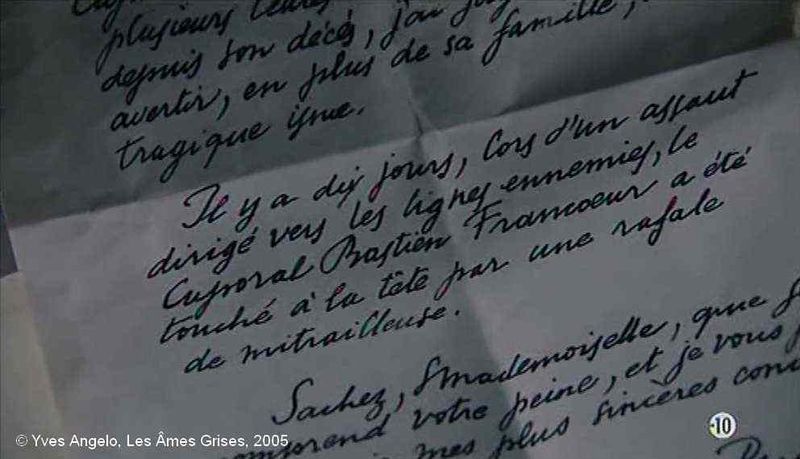 plusieurs lettres
depuis son décès, j'ai
avertir, en plus de sa famille,
tragique issue.
Il y a dix jours, lors d'un assaut
dirigé vers les lignes ennemies, le
Caporal Bastien Francoeur a été
touché à la tête par une rafale
de mitrailleuse.
Sachez, Mademoiselle, que
comprend votre peine, et je vous
mes plus sincères
-10
© Yves Angelo, Les Âmes Grises, 2005